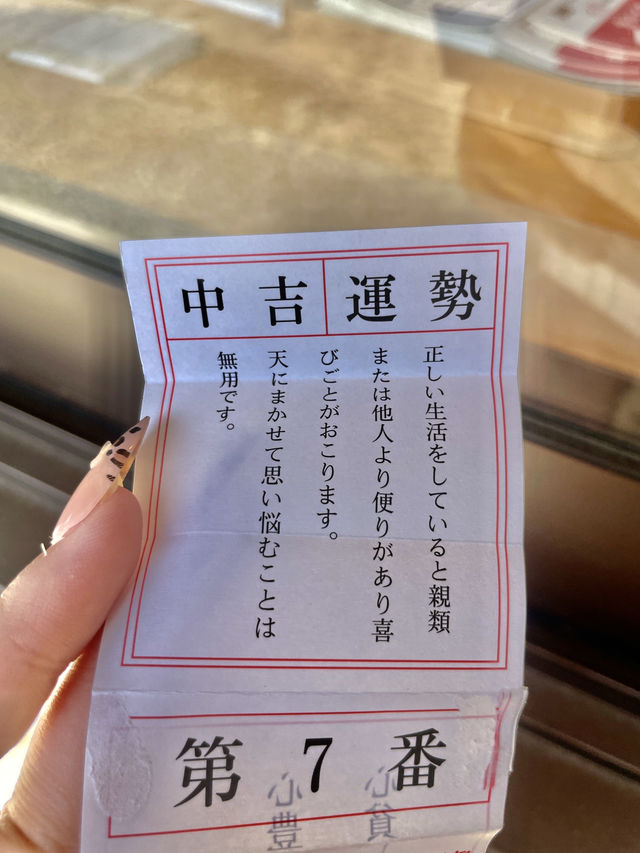 中吉 運勢
正しい生活をしていると親類
または他人より便りがあり喜
びごとがおこります。
天にまかせて思い悩むことは
無用です。
第7番